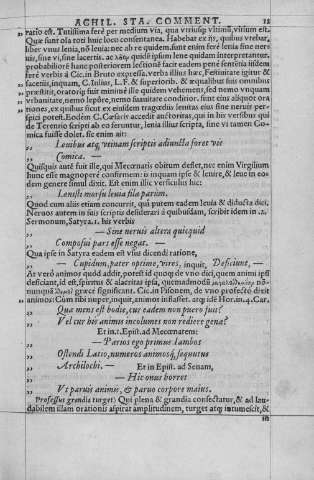 ACHIL. STA. COMMENT.
ratio est. Tutissima ferè per medium via, qua vtriusq; vltimũ, vitium est.
Quæ sunt ola roti huic loco consentanea. Habebat ex ijs, quibus vtebar,
liber vnus lenia, nõ leuia: nec ab re quidem. sunt enim ferè lenia sine ner
uis, siue vi, sine lacertis. ac ipsum lene quidam interpretantur.
probabiliorẽ hanc posteriorem lectionẽ facit eadem penè sentẽtia ijsdem
ferè verbis à Cic. in Bruto expressa. verba illius hæc, Festiuitate igitur &
facetijs, inquam, C. Iulius, L. F. & superiorib. & æqualibus suis omnibus
præstitit, orator q; fuit minimè ille quidem vehemens, sed nemo vnquam
vrbanitate, nemo lepôre, nemo suauitate conditior. sunt eius aliquot ora
tiones, ex quibus sicut ex eiusdem tragœdijs lenitas eius sine neruis per-
spici potest. Eodem C. Cæsaris accedit auctoritas, qui in his versibus qui
de Terentio scripti ab eo feruntur, lenia illius scripta, sine vi tamen Co-
mica fuisse dolet. sic enim ait:
Lenibus atq; vtinam scriptis adiuncta foret vis
Comica. —
Quisquis autẽ fuit ille, qui Mecœnatis obitum deflet, nec enim Virgilium
hunc esse magnopere confirmem: is inquam ipse & leuire, & leue in eo-
dem genere simul dixit. Est enim illic versiculus hic:
Leniste morsu leuia fila parùm.
Quod cum alijs etiam concurrit, quà putem eadem leuia & diducta dici.
Neruos autem in suis scriptis desiderari à quibusdam, scribit idem in .2.
Sermonum, Satyra .1. his verbis
— Sine neruis altera quicquid
Composui pars esse negat. —
Qua ipse in Satyra eadem est vsus dicendi ratione,
— Cupidum, pater optime, vires, inquit, Deficiunt, —
At verò animos quòd addit, potest id quoq; de vno dici, quem animi ipsi
deficiant, id est, spiritus & alacritas ipsa, quemadmodũ nõ-
nunquã græcè significant. Cic. in Pisonem, de vno profectò dixit
animos: Cum tibi nuper, inquit, animos inflasset. atq; ide Hor. in .4. Car.
Quæ mens est hodie, cur eadem non puero fuit?
Vel cur his animis incolumes non redêre genæ?
Et in .1. Epist. ad Mecœnatem:
— Parios ego primus Iambos
Ostendi Latio, numeros animosq; sequutus
Archilochi. — Et in Epist. ad Senam,
— Hic onus horret
Vt paruis animis, & paruo corpore maius.
Professus grandia turget:) Qui plena & grandia consectatur, & lau-
dabilem illam orationis aspirat amplitudinem, turget atq; intumescit, &
in